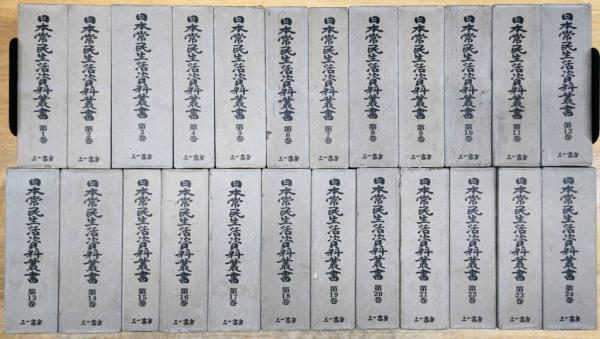 日本常民生活資料叢書 第1巻 三一書房
日本常民生活資料叢書 第2巻 三一書房
日本常民生活資料叢書 第3巻 三一書房
日本常民生活資料叢書 第4巻 三一書房
日本常民生活資料叢書 第5巻 三一書房
日本常民生活資料叢書 第6巻 三一書房
日本常民生活資料叢書 第7巻 三一書房
日本常民生活資料叢書 第8巻 三一書房
日本常民生活資料叢書 第9巻 三一書房
日本常民生活資料叢書 第10巻 三一書房
日本常民生活資料叢書 第11巻 三一書房
日本常民生活資料叢書 第12巻 三一書房
日本常民生活資料叢書 第13巻 三一書房
日本常民生活資料叢書 第14巻 三一書房
日本常民生活資料叢書 第15巻 三一書房
日本常民生活資料叢書 第16巻 三一書房
日本常民生活資料叢書 第17巻 三一書房
日本常民生活資料叢書 第18巻 三一書房
日本常民生活資料叢書 第19巻 三一書房
日本常民生活資料叢書 第20巻 三一書房
日本常民生活資料叢書 第21巻 三一書房
日本常民生活資料叢書 第22巻 三一書房
日本常民生活資料叢書 第23巻 三一書房
日本常民生活資料叢書 第24巻 三一書房